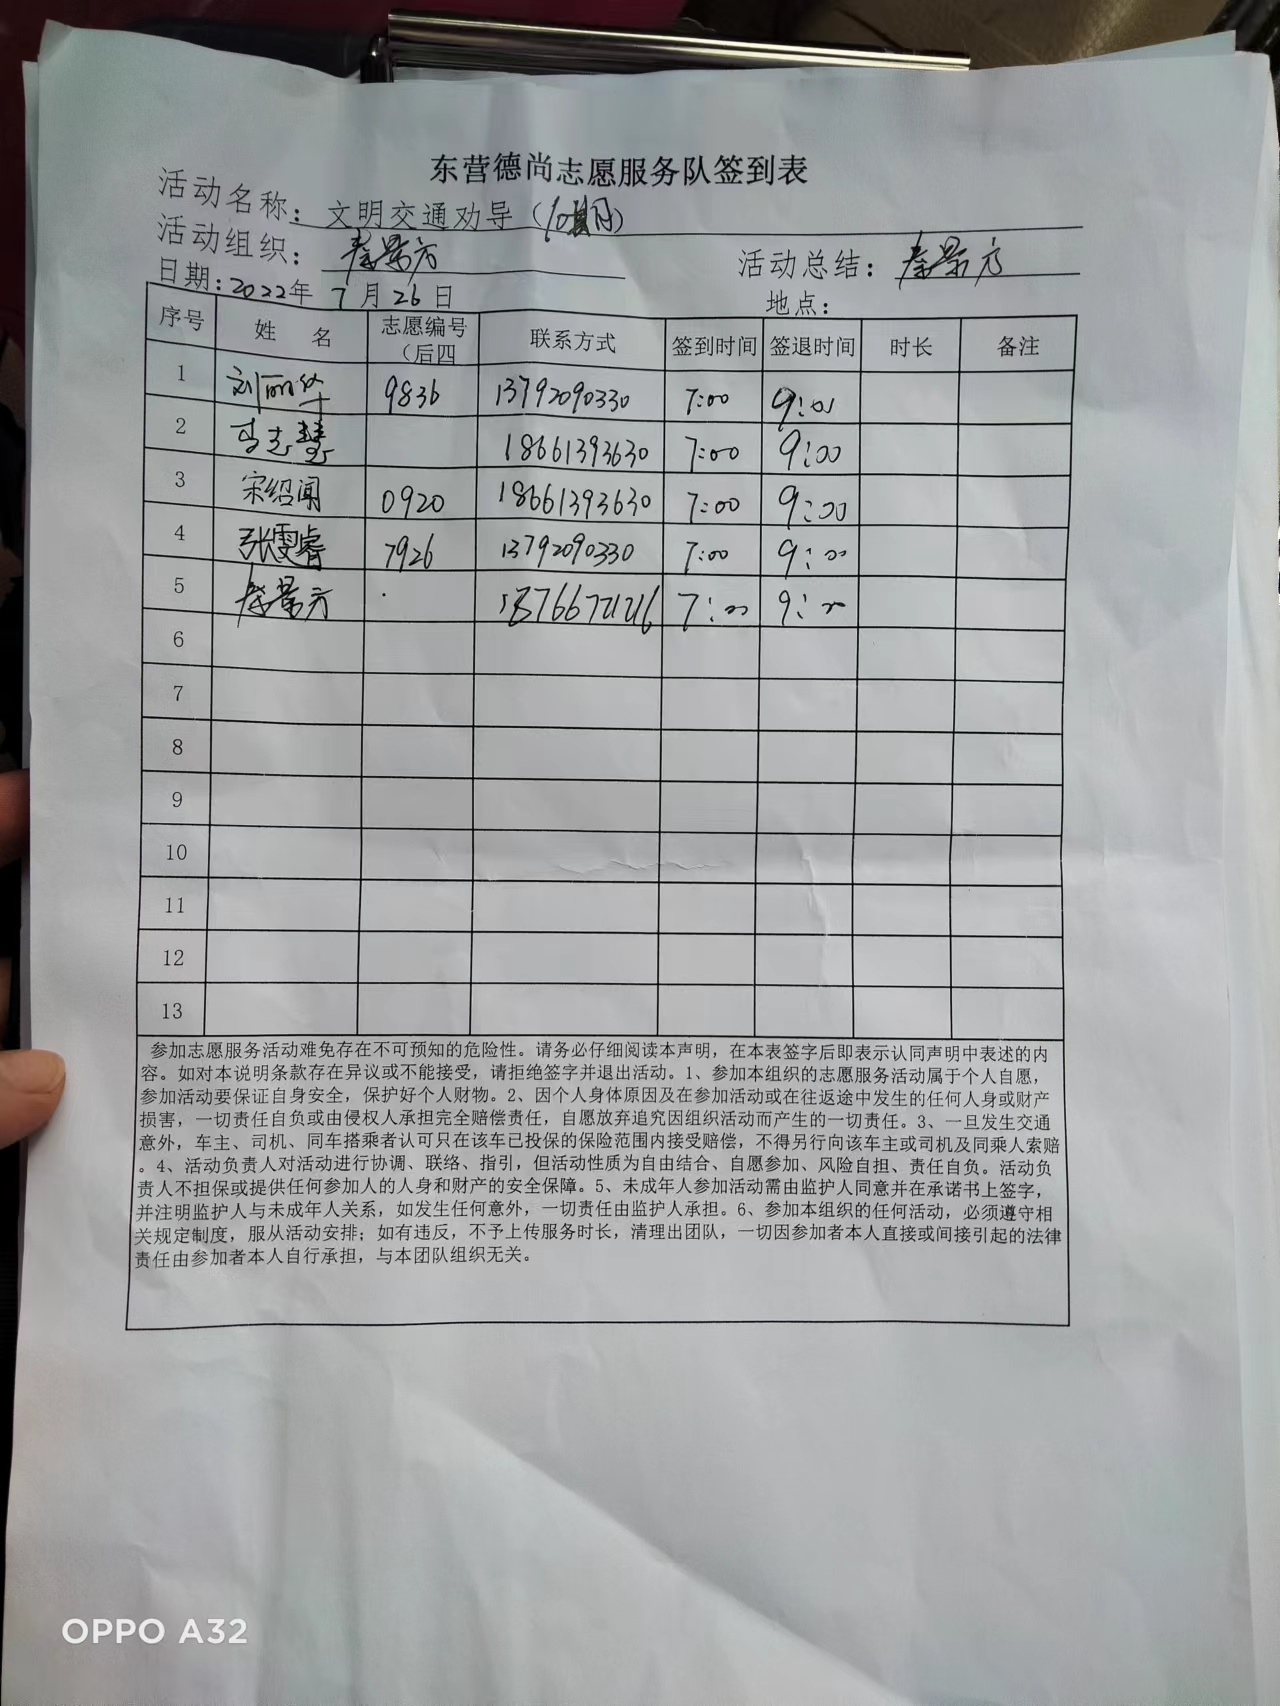 东营德尚志愿服务队签到表
活动名称：文明交通劝导（
活动组织：秦景方 活动总结：秦景方
日期：2022年 7月26日 地点：
序号 姓 名 志愿编号（后四 联系方式 签到时间 签退时间 时长 备注
1 刘丽华 9836 13792090330 7:00 9:00
2 李志慧 18661393630 7:00 9:00
3 宋绍闻 0920 18661393630 7:00 9:00
4 张雯睿 7926 13792090330 7:00 9:00
5 秦景方 7:00 9:00
6
7
8
9
10
11
12
13
参加志愿服务活动难免存在不可预知的危险性。请务必仔细阅读本声明，在本表签字后即表示认同声明中表述的内
容。如对本说明条款存在异议或不能接受，请拒绝签字并退出活动。1、参加本组织的志愿服务活动属于个人自愿，
参加活动要保证自身安全，保护好个人财物。2、因个人身体原因及在参加活动或在往返途中发生的任何人身或财产
损害，一切责任自负或由侵权人承担完全赔偿责任，自愿放弃追究因组织活动而产生的一切责任。3、一旦发生交通
意外，车主、司机、同车搭乘者认可只在该车已投保的保险范围内接受赔偿，不得另行向该车主或司机及同乘人索赔
。4、活动负责人对活动进行协调、联络、指引，但活动性质为自由结合、自愿参加、风险自担、责任自负。活动负
责人不担保或提供任何参加人的人身和财产的安全保障。5、未成年人参加活动需由监护人同意并在承诺书上签字，
并注明监护人与未成年人关系，如发生任何意外，一切责任由监护人承担。6、参加本组织的任何活动，必须遵守相
关规定制度，服从活动安排；如有违反，不予上传服务时长，清理出团队，一切因参加者本人直接或间接引起的法律
责任由参加者本人自行承担，与本团队组织无关。
OPPO A32